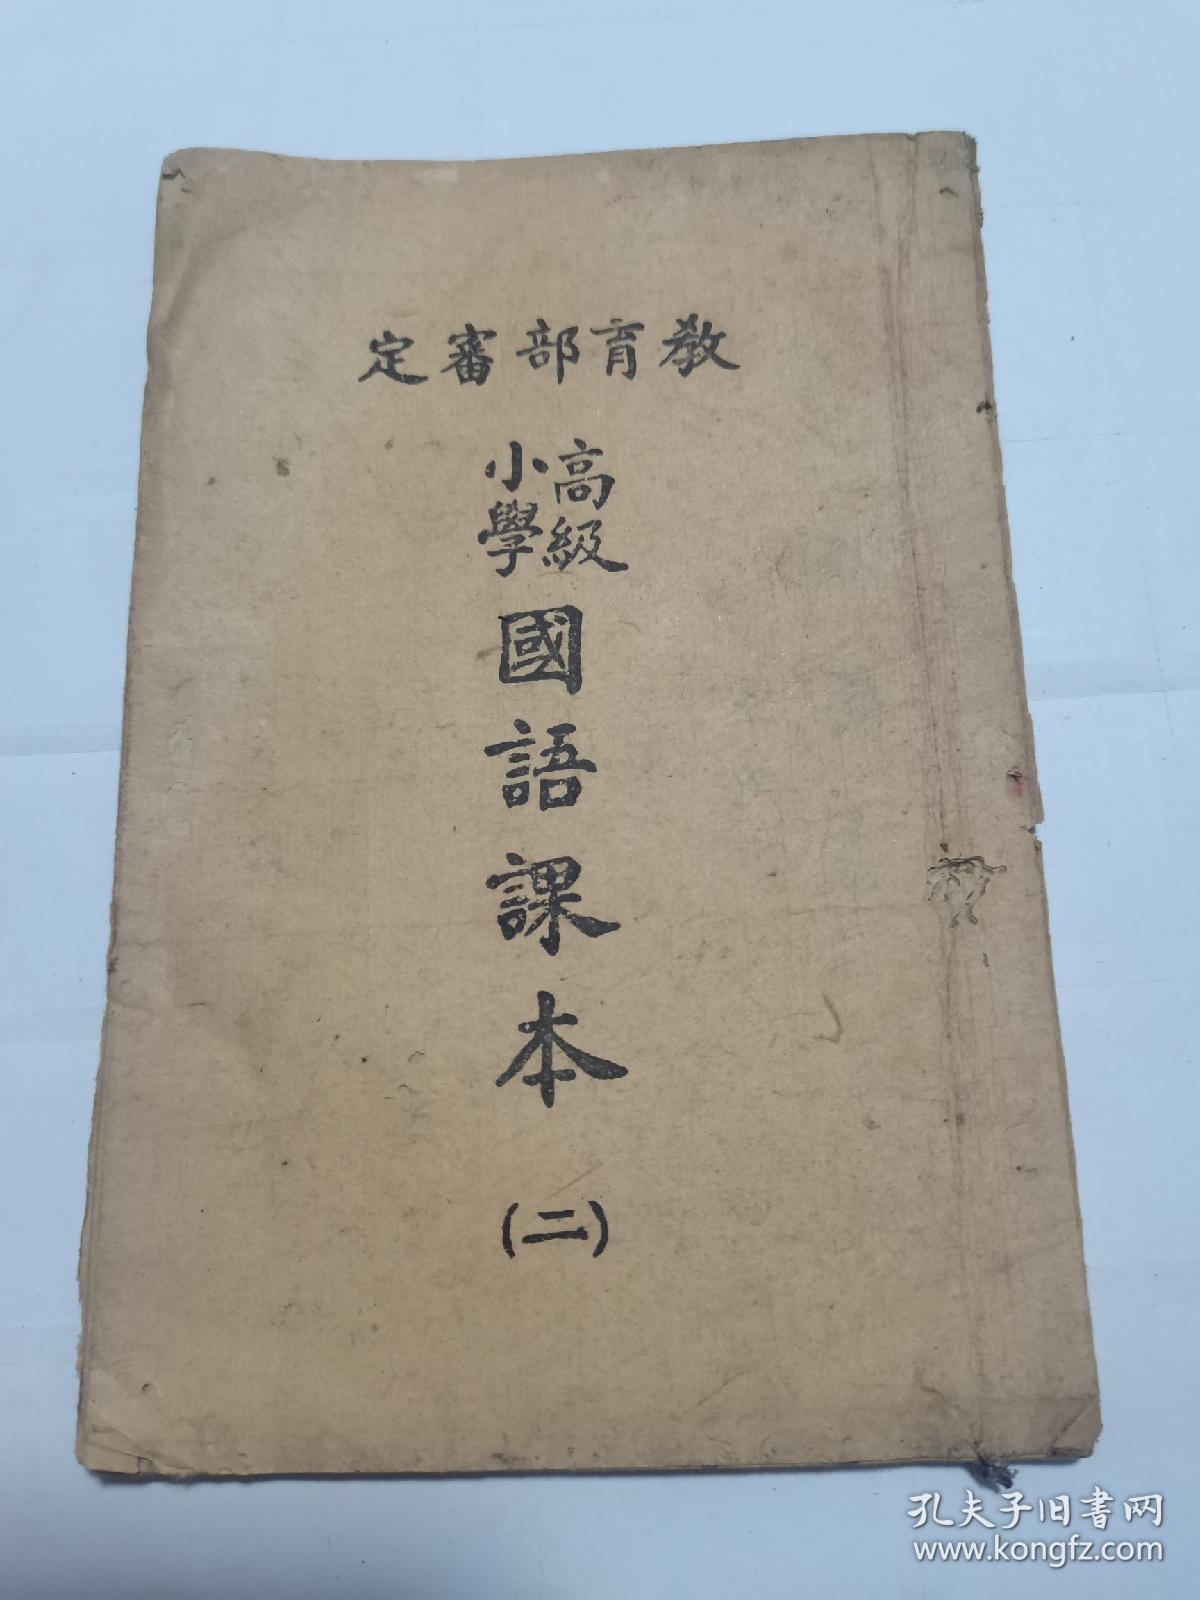 教育部審定
高級
小學
國語課本
(二)
孔夫子旧书网
www.kongfz.com